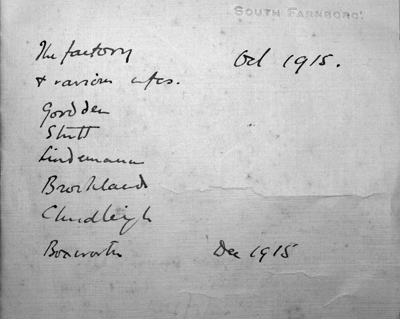 SOUTH FARNBORO'
The factory Oct 1915.
& various
Goodden
Stutt
Lindemann
Brooklands
Chudleigh
Boxworth Dec 1915